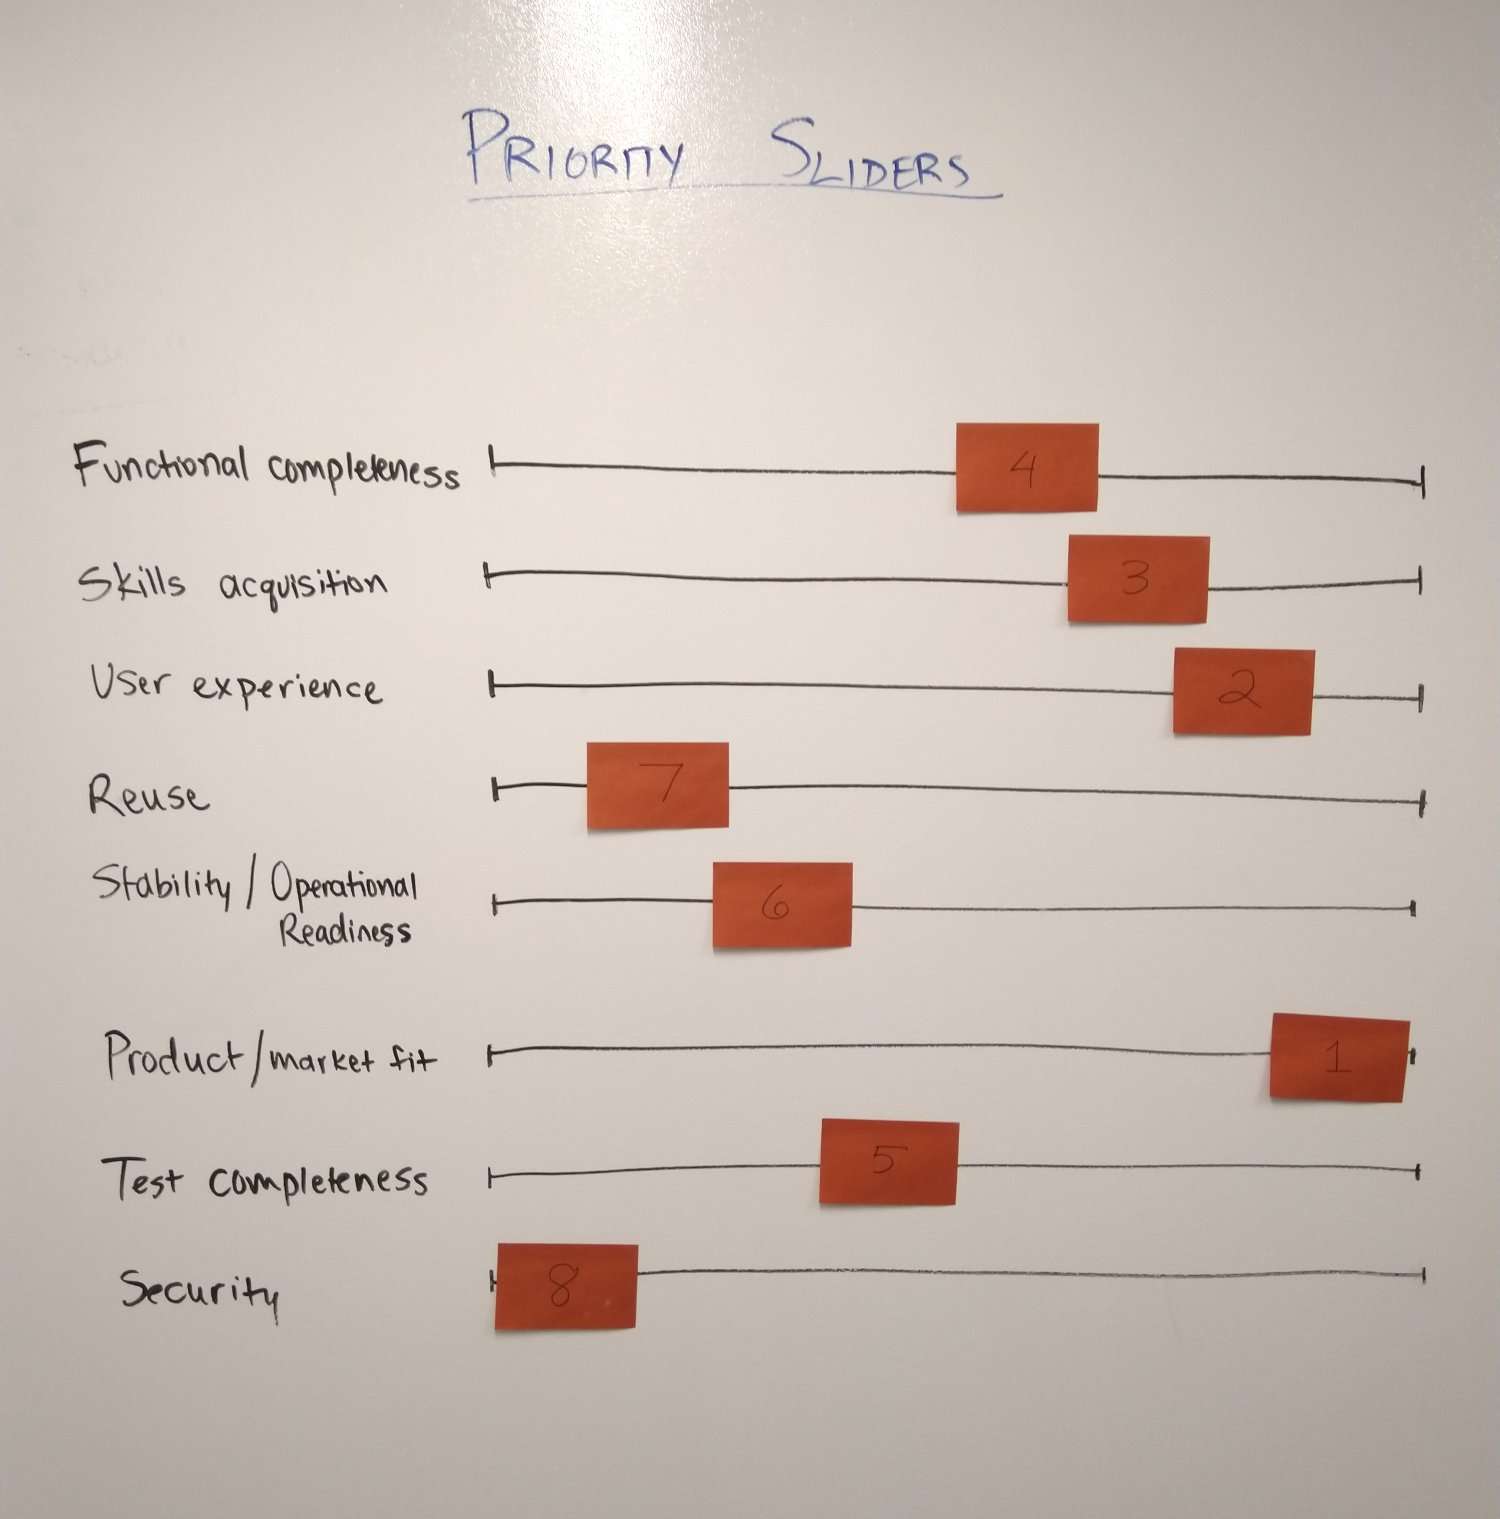 PRIORITY SLIDERS
Functional completeness 4
Skills acquisition 3
User experience 2
Reuse 7
Stability / Operational 6
Readiness
Product/market fit 1
Test completeness 5
Security 8